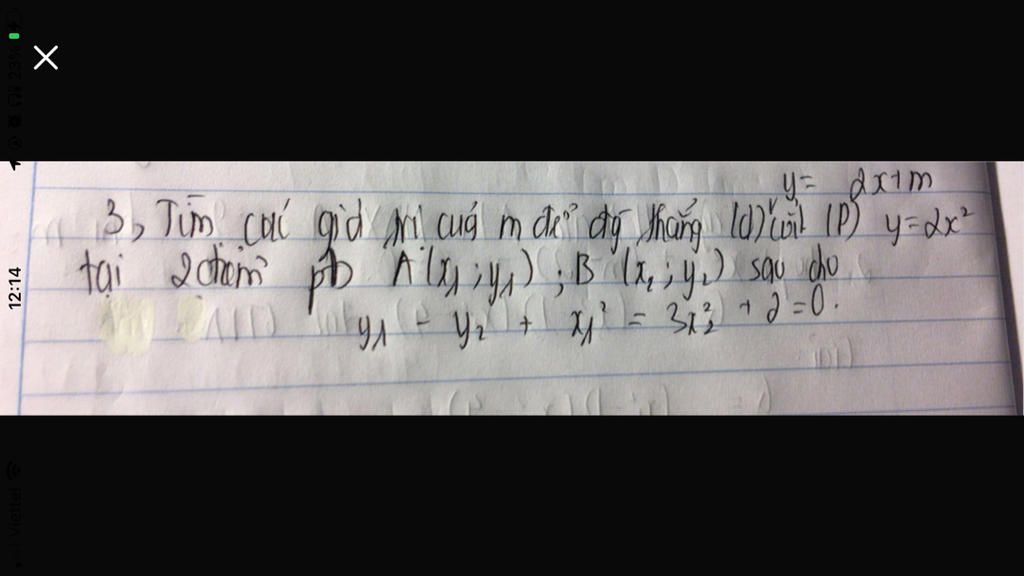 y = 2x+m
3, Tìm các giá trị của m để đg thẳng (d) cắt (P) y=2x²
tại 2 điểm pb A (x₁ ; y₁) ; B (x₂ ; y₂) sao cho
y₁ - y₂ + x₁² = 3x₂² + 2 = 0.
12:14
23%
Viettel